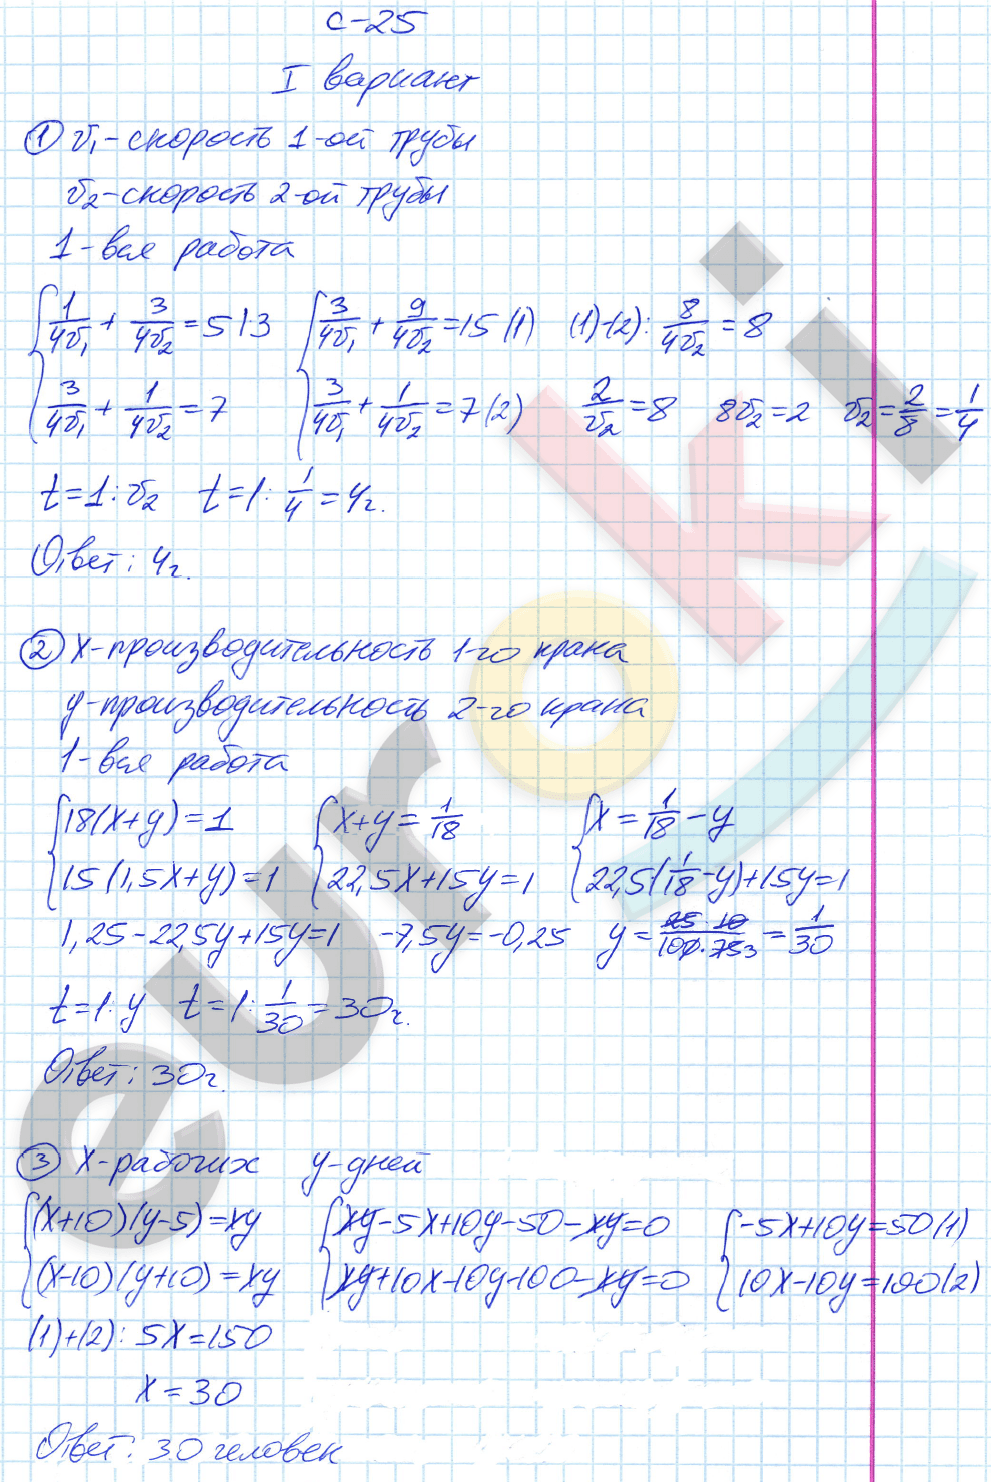 С-25
I вариант
① v₁ - скорость 1-ой трубы
v₂ - скорость 2-ой трубы
1 - вся работа
{ 1/4v₁ + 3/4v₂ = 5 |·3 { 3/4v₁ + 9/4v₂ = 15 (1) (1)-(2): 8/4v₂ = 8
3/4v₁ + 1/4v₂ = 7 3/4v₁ + 1/4v₂ = 7 (2) 2/v₂ = 8 8v₂ = 2 v₂ = 2/8 = 1/4
t = 1 : v₂ t = 1 : 1/4 = 4ч.
Ответ: 4ч.
② x - производительность 1-го крана
y - производительность 2-го крана
1 - вся работа
{ 18(x+y) = 1 { x+y = 1/18 { x = 1/18 - y
15(1,5x+y) = 1 22,5x+15y = 1 22,5(1/18 - y)+15y = 1
1,25 - 22,5y + 15y = 1 -7,5y = -0,25 y = 25·10/100·75 3 = 1/30
t = 1 : y t = 1 : 1/30 = 30ч.
Ответ: 30ч.
③ x - рабочих y - дней
{ (x+10)(y-5) = xy { xy-5x+10y-50-xy=0 { -5x+10y=50 (1)
(x-10)(y+10) = xy xy+10x-10y-100-xy=0 10x-10y=100 (2)
(1)+(2): 5x=150
x = 30
Ответ: 30 человек
euroki